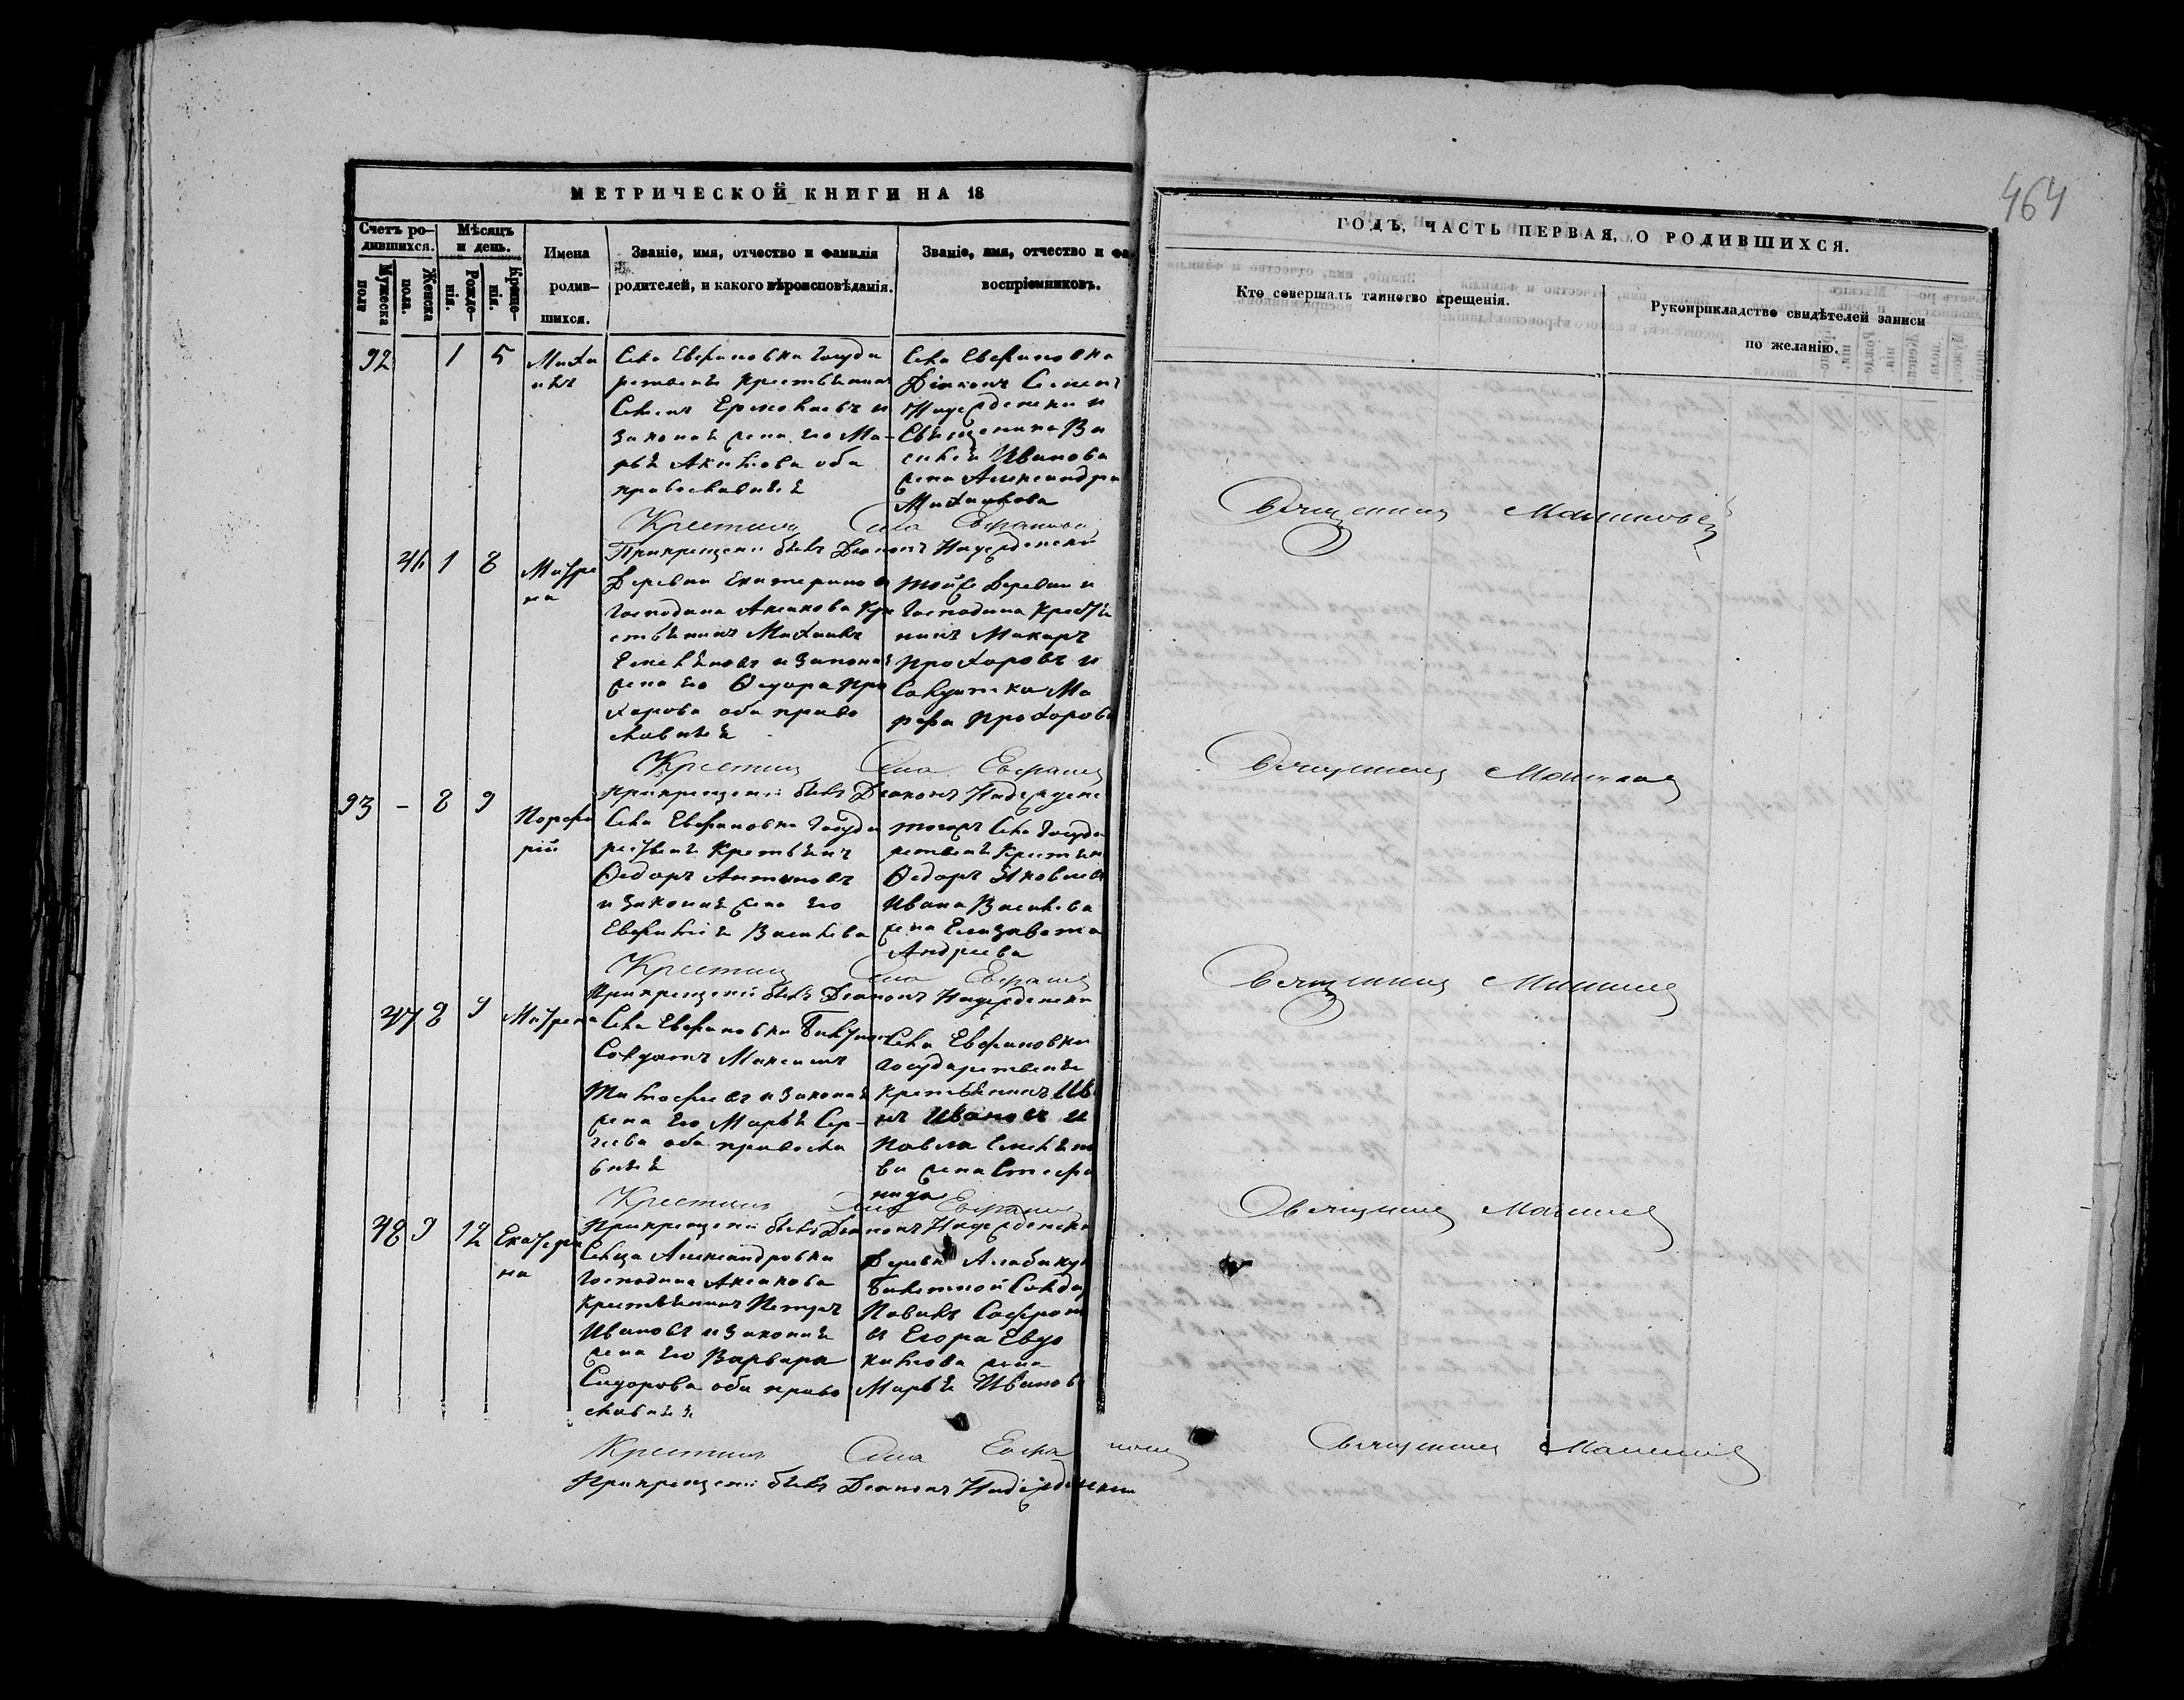 464
МЕТРИЧЕСКОЙ КНИГИ НА 18
ГОДЪ, ЧАСТЬ ПЕРВАЯ, О РОДИВШИХСЯ.
Счетъ ро-
дившихся.
Мужеска
полу
Женска
пола.
Мѣсяцъ
и день.
Рожде-
нія.
Креще-
нія.
Имена
родив-
шихся.
Званіе, имя, отчество и фамилія
родителей, и какого вѣроисповѣданія.
Званіе, имя, отчество и фа
воспріемниковъ.
Кто совершалъ таинство крещенія.
Рукоприкладство свидѣтелей записи
по желанію.
92
1
5
Михаи
Села Евфановки Госуда
рственне Крестьянинъ
и
законая жена его Ма-
рья Акимова оба
православные
Села Евфановки
Діаконъ Семенъ
Надежденски и
Священника Ва
силія Иванова
жена Александра
Михаилова
Крестилъ Села Евфановки
Священникъ
Прикрещеніи былъ Діаконъ Надежденски
46
1
8
Матре
на
Деревни Екатерино
Господина Аксакова Кре
стьянинъ Михаилъ
Емельяновъ и законая
жена его Федора Про
харова оба право
славные
тойже Деревни и
Господина Крестья
нинъ Макаръ
Прохоровъ и
Солдатка Ма
рфа Прохорова
Крестилъ Села Евфановки
Священникъ
Прикрещеніи былъ Діаконъ Надежденс
93
-
8
9
Порфи
рій
Села Евфановки Госуда
рственне Крестьянинъ
Федоръ Антоновъ
и законая жена его
Евфимія Васильева
тогожъ Села Госуда
рственне Крестьян
Федоръ Яковлевъ
Ивана Васильева
жена Елизавета
Андреева
Крестилъ Села Евфановки
Священникъ
Прикрещеніи былъ Діаконъ Надежденски
47
8
9
Матрена
Села Евфановки Билетной
Солдатъ Максимъ
Тимофеевъ и законая
жена его Марья Сер-
геева оба правосла
вные
Села Евфановки
Государственне
Крестьянинъ Ив
нъ Ивановъ и
Павла Емельяно
ва жена Стефа
нида
Крестилъ Села Евфановки
Священникъ
Прикрещеніи былъ Діаконъ Надежденски
48
9
12
Екатери
на
Сельца Александровки
Господина Аксакова
Крестьянинъ Петръ
Ивановъ и законая
жена его Варвара
Сидорова оба право
славные
Деревни
Билетной Солда
Павелъ Софрон
въ Егора Евдо
кимова жена
Марья Иванова
Крестилъ Села Евфановки
Священникъ
Прикрещеніи былъ Діаконъ Надежденски